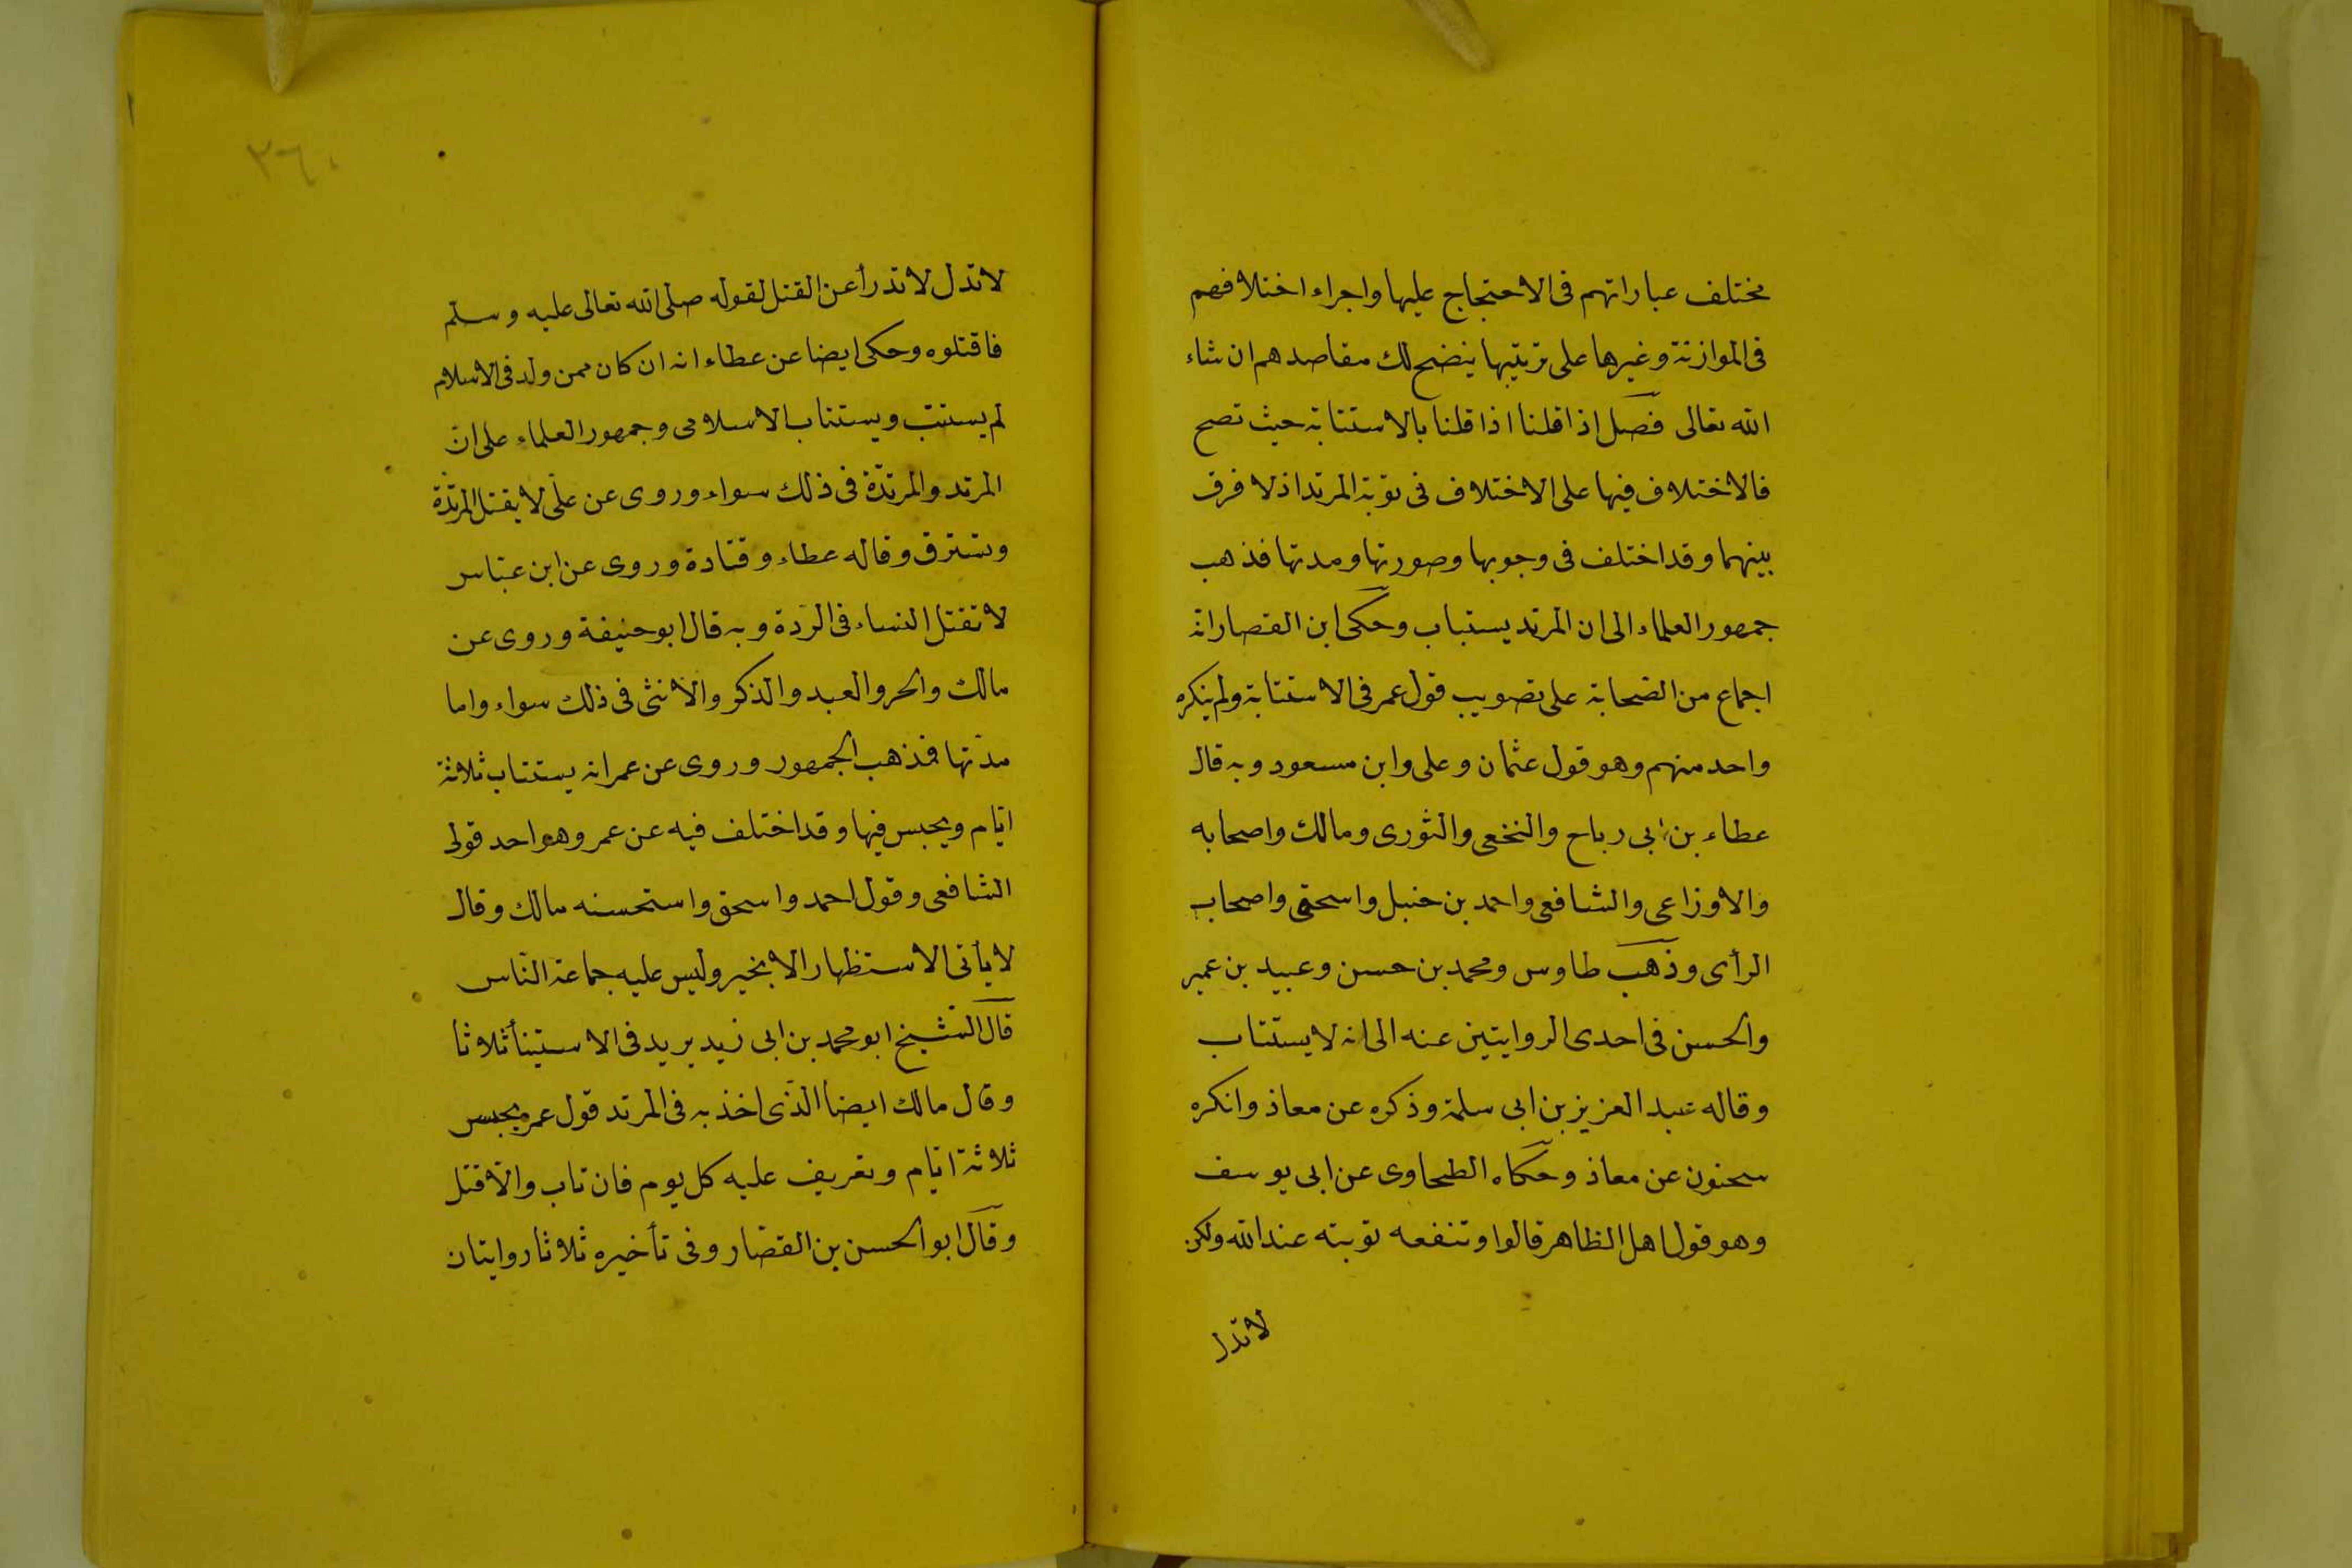 مختلف عباراتهم فى الاحتجاج عليها واجراء اختلافهم
فى الموازنة وغيرها على ترتيبها يتضح لك مقاصدهم ان شاء
الله تعالى فصل اذا قلنا اذا قلنا بالاستتابة حيث تصح
فالاختلاف فيها على الاختلاف فى توبة المرتد اذ لا فرق
بينهما وقد اختلف فى وجوبها وصورتها ومدتها فذهب
جمهور العلماء الى ان المرتد يستباب وحكى ابن القصار انه
اجماع من الصحابة على تصويب قول عمر فى الاستتابة ولم ينكره
واحد منهم وهو قول عثمان وعلى وابن مسعود وبه قال
عطاء بن ابى رباح والنخعى والثورى ومالك واصحابه
والاوزاعى والشافعى واحمد بن حنبل واسحق واصحاب
الرأى وذهب طاوس ومحمد بن حسن وعبيد بن عمير
والحسن فى احدى الروايتين عنه الى انه لا يستتاب
وقاله عبد العزيز بن ابى سلمة وذكره عن معاذ وانكره
سحنون عن معاذ وحكاه الطحاوى عن ابى يوسف
وهو قول اهل الظاهر قالوا وتنفعه توبته عند الله ولكن
لا تدل
٣٦٠
لا تدل لا تدرأ عن القتل لقوله صلى الله تعالى عليه وسلم
فاقتلوه وحكى ايضا عن عطاء انه ان كان ممن ولد فى الاسلام
لم يستتب ويستتاب الاسلامى وجمهور العلماء على ان
المرتد والمرتدة فى ذلك سواء وروى عن على لا يقتل المرتدة
وتسترق وقاله عطاء وقتادة وروى عن ابن عباس
لا تقتل النساء فى الردة وبه قال ابو حنيفة وروى عن
مالك والحر والعبد والذكر والانثى فى ذلك سواء واما
مدتها فمذهب الجمهور وروى عن عمر انه يستتاب ثلاثة
ايام ويحبس فيها وقد اختلف فيه عن عمر وهو احد قولى
الشافعى وقول احمد واسحق واستحسنه مالك وقال
لا يأتى الاستظهار الا بخير وليس عليه جماعة الناس
قال الشيخ ابو محمد بن ابى زيد يريد فى الاستينأ ثلاثا
وقال مالك ايضا الذى اخذ به فى المرتد قول عمر يحبس
ثلاثة ايام وتعريف عليه كل يوم فان تاب والا قتل
وقال ابو الحسن بن القصار وفى تأخيره ثلاثا روايتان